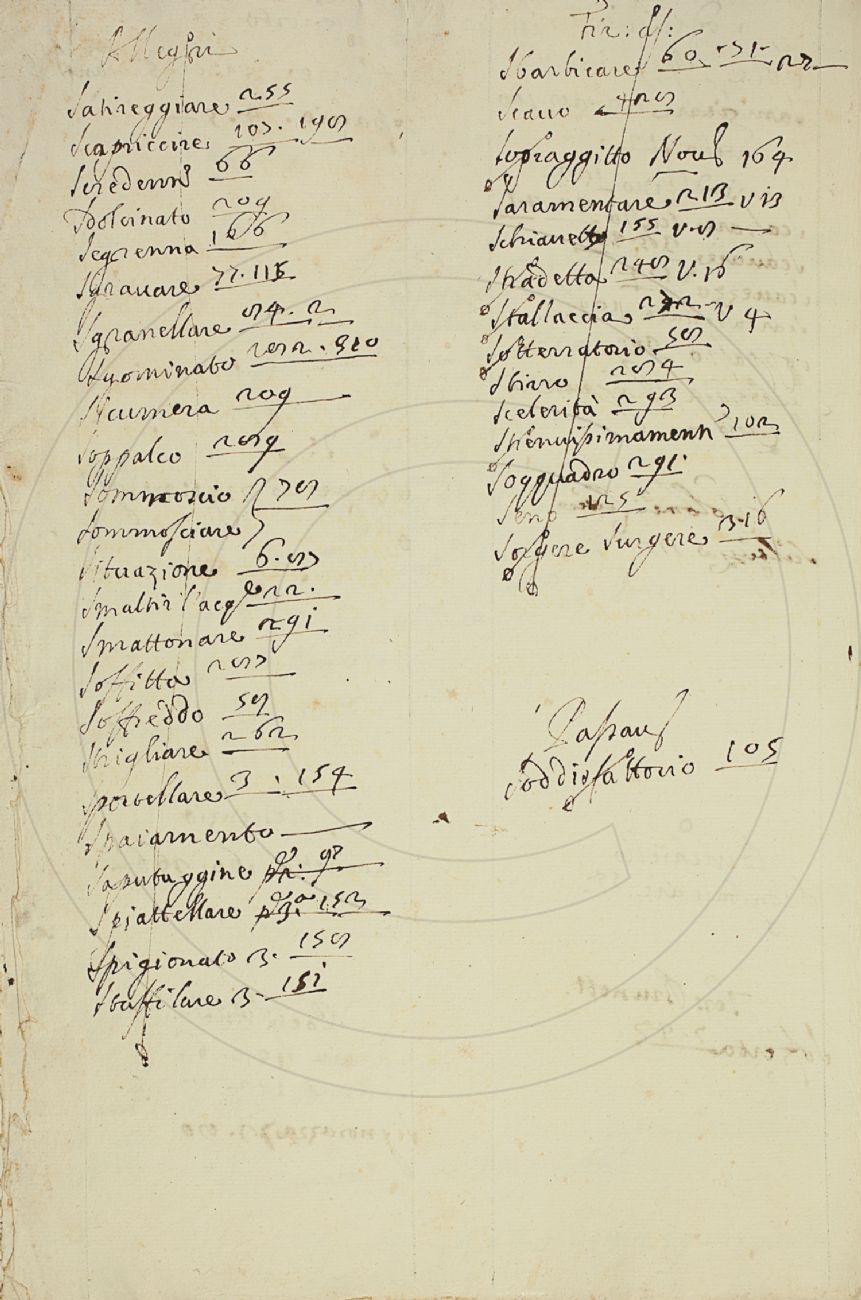 Allegri
Satireggiare 255
Scapriccire 107. 198
Scredenti 66
Sdolcinato 209
Segrenna 166
Sgravare 77. 115
Sgranellare 84. 2
Snominato 310
Scurnera 209
Soppalco 289
Sommoscio 278
Sommosciare
Situazione 6. 87
Smaltir l'acq 22.
Smattonare 291
Soffitta 287
Soffreddo 58
Strigliare 262
Sportellare 3. 154
Spaiamento
Saputaggine 92
Spiattellare 152
Spigionato 3. 158
Staffilare 3. 151
Fir: as:
Sbarbicare 60. 71. 27
Scavo 428
Sopraggitto Nov 164
Saramentare 213 v 13
Schiavetto 155 v. 8
Stradetta 248 v. 16
Stallaccia v 4
Sotterratorio 58
Sbirro 284
Scelerità 293
Strenuissimamente 102
Sogquadro 291.
Seno 125
Sorgere Surgere 3. 16
Passav
Soddisfattorio 105